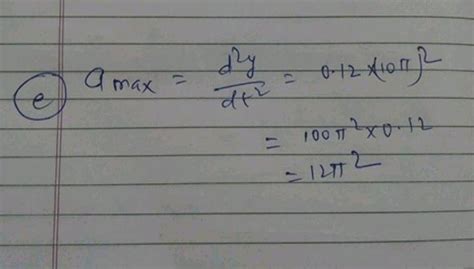 (e) a max = d²y/dt² = 0.12 × (10π)²
= 100π² × 0.12
= 12π²